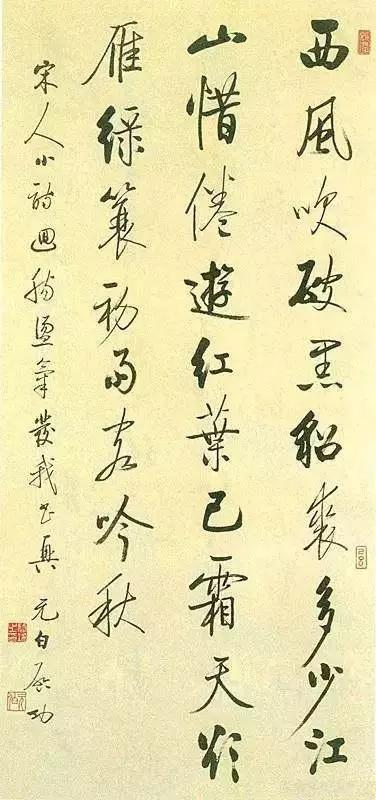 西風吹破黑貂裘多少江
山惜倦遊紅葉已霜天欲
雁緑蓑初雨客吟秋
宋人小詩迴腸盪氣發我書興 元白啟功